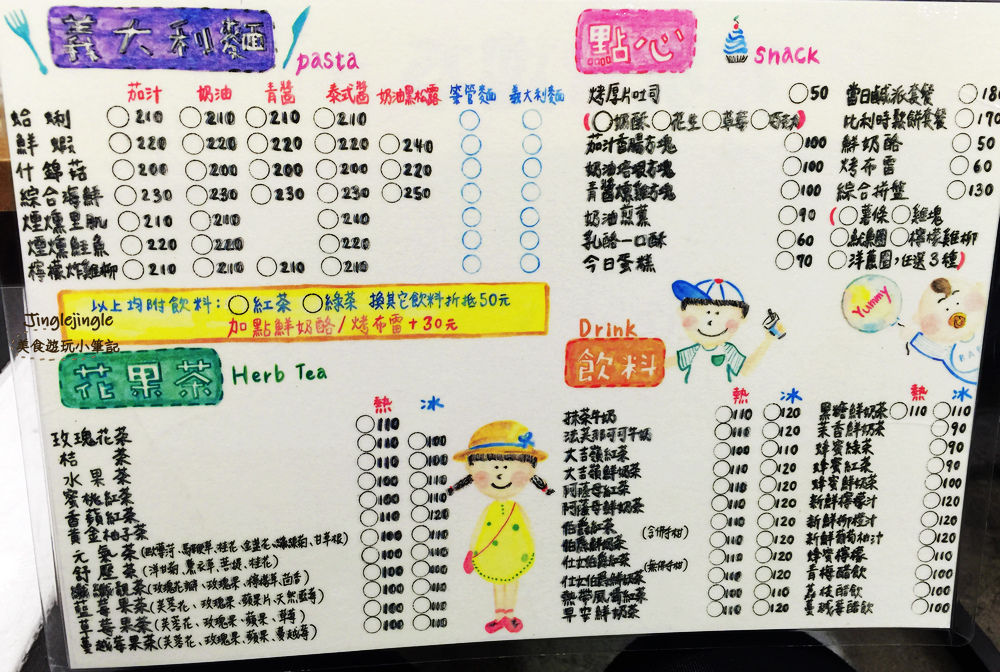 義大利麵 pasta
茄汁 奶油 青醬 泰式醬 奶油黑松露 筆管麵 義大利麵
蛤蜊 210 210 210 210
鮮蝦 220 220 220 220 240
什錦菇 200 200 200 200 220
綜合海鮮 230 230 230 230 250
煙燻里肌 210 210 210
煙燻鮭魚 220 220 220
檸檬炸雞柳 210 210 210 210
以上均附飲料: 紅茶 綠茶 換其它飲料折抵50元
加點鮮奶酪/烤布雷+30元
Jinglejingle
美食遊玩小筆記
點心 snack
烤厚片吐司 50
(奶酥 花生 草莓 巧克力)
茄汁香腸方塊 100
奶油培根方塊 100
青醬燻雞方塊 100
奶油煎蕈 90
乳酪一口酥 60
今日蛋糕 90
當日鹹派套餐 180
比利時鬆餅套餐 170
鮮奶酪 50
烤布雷 60
綜合拼盤 130
(薯條 雞塊
魷魚圈 檸檬雞柳
洋蔥圈,任選3種)
Yummy
花果茶 Herb Tea
熱 冰
玫瑰花茶 110
桔茶 110 100
水果茶 110 100
蜜桃紅茶 100 110
香蘋紅茶 110 110
黃金柚子茶 110 120
元氣茶 100 110
舒壓茶(洋甘菊、薰衣草、菩提、桂花) 100 110
纖纖靚茶(玫瑰花瓣、玫瑰果、檸檬草、茴香) 100 110
藍莓果茶(芙蓉花、玫瑰果、蘋果片、天然藍莓) 100 110
草莓果茶(芙蓉花、玫瑰果、蘋果、草莓) 100 110
蔓越莓果茶(芙蓉花、玫瑰果、蘋果、蔓越莓) 100 110
Drink
飲料
熱 冰
抹茶牛奶 110 120
法芙那可可牛奶 110 120
大吉嶺紅茶 100 110
大吉嶺鮮奶茶 110 120
阿薩姆紅茶 100 110
阿薩姆鮮奶茶 110 120
伯爵紅茶 (含佛手柑) 110 110
伯爵鮮奶茶 110 120
仕女伯爵紅茶 (無佛手柑) 110 120
仕女伯爵鮮奶茶 110 120
熱帶風情紅茶 100 110
早安鮮奶茶 110 120
熱 冰
黑糖鮮奶茶 110 110
茉香鮮奶茶 90
蜂蜜綠茶 90
蜂蜜紅茶 90
蜂蜜鮮奶茶 100
新鮮檸檬汁 120
新鮮柳橙汁 120
新鮮葡萄柚汁 120
蜂蜜檸檬 110
青梅醋飲 100
荔枝醋飲 100
蔓越莓醋飲 100